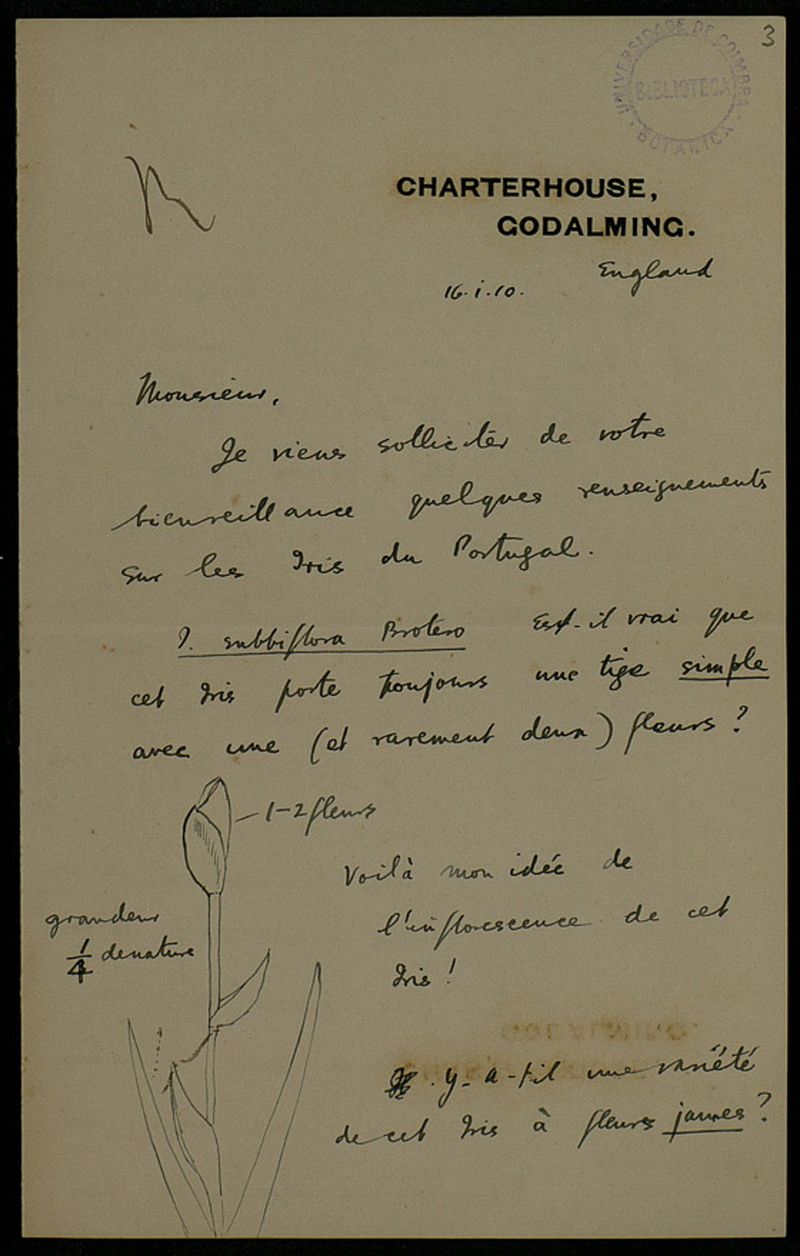 3
UNIVERSIDADE DE COIMBRA
BIBLIOTECA
BOTANICA
R
CHARTERHOUSE,
GODALMING.
England
16.i.10.
Monsieur,
Je viens solliciter de votre
bienveillance quelques renseignements
sur les Iris du Portugal.
I. subbiflora Brotero Est-il vrai que
cet Iris porte toujours une tige simple
avec une (et rarement deux) fleurs?
1-2 fleurs
Voilà mon idée de
l'inflorescence de cet
Iris!
grandeur
1/4 de nature
y-a-t-il une variété
de cet Iris à fleurs jaunes?